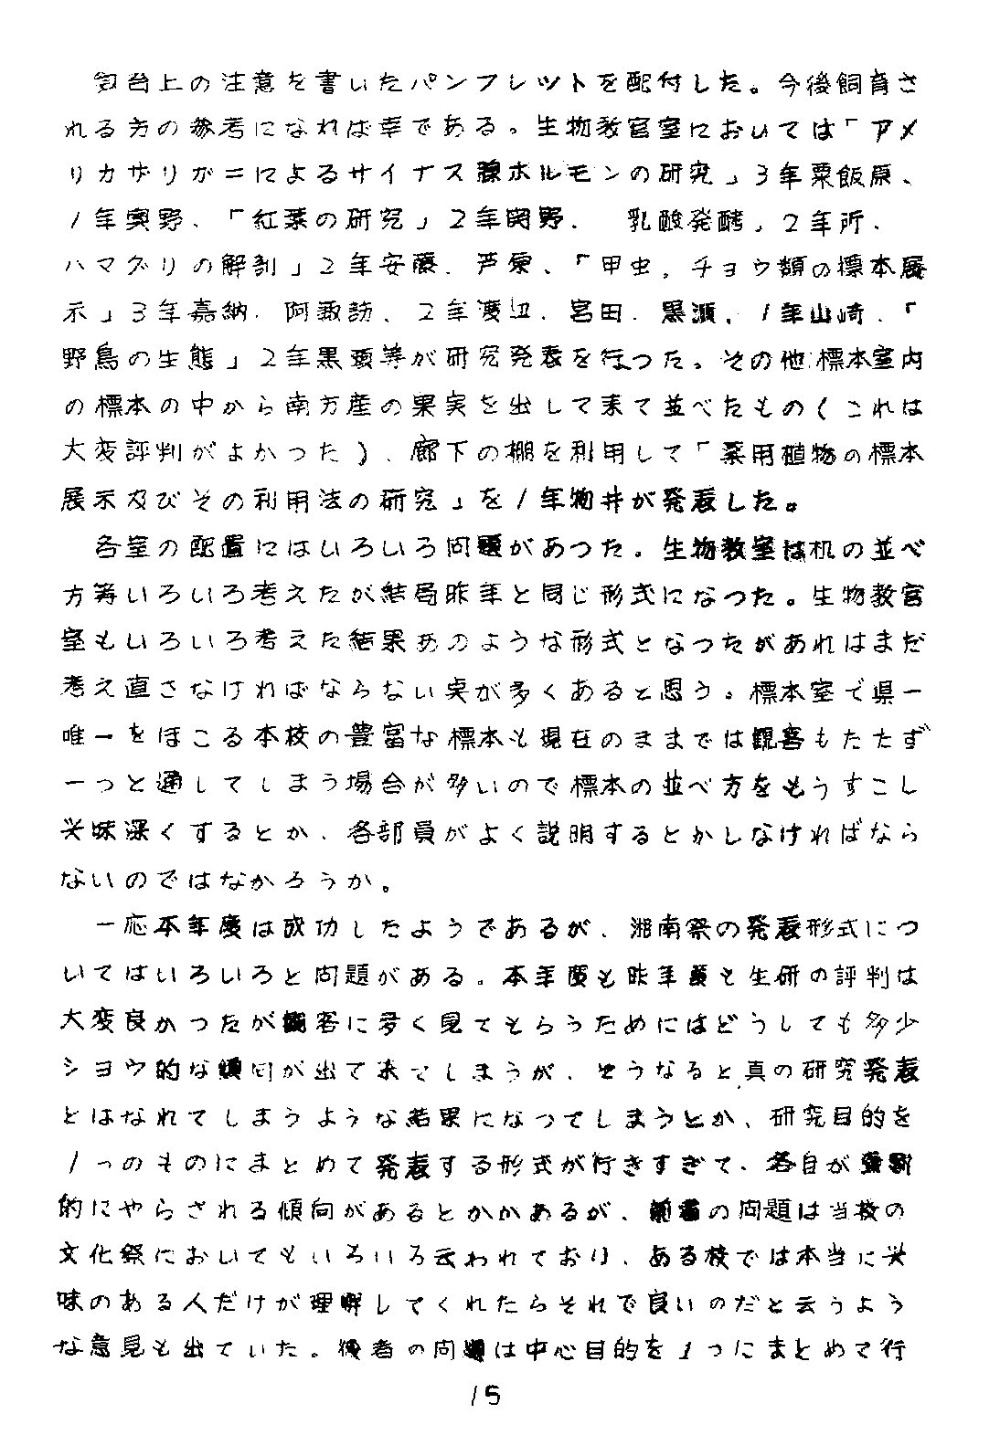 飼育上の注意を書いたパンフレットを配付した。今後飼育さ
れる方の参考になれば幸である。生物教官室においては「アメ
リカザリガニによるサイナス腺ホルモンの研究」3年粟飯原、
1年奥野、「紅葉の研究」2年関野.　乳酸発酵」2年所.
ハマグリの解剖」2年安藤.芦原、「甲虫,チョウ類の標本展
示」3年嘉納.阿諏訪、2年渡辺.宮田.黒瀬、1年山崎.「
野鳥の生態」2年黒頭等が研究発表を行つた。その他標本室内
の標本の中から南方産の果実を出して来て並べたもの(これは
大変評判がよかつた)、廊下の棚を利用して「薬用植物の標本
展示及びその利用法の研究」を1年物井が発表した。
各室の配置にはいろいろ問題があつた。生物教室は机の並べ
方等いろいろ考えたが結局昨年と同じ形式になつた。生物教官
室もいろいろ考えた結果あのような形式となつたがあれはまだ
考え直さなければならない点が多くあると思う。標本室で県一
唯一をほこる本校の豊富な標本も現在のままでは観客もたたず
一つと通してしまう場合が多いので標本の並べ方をもうすこし
興味深くするとか、各部員がよく説明するとかしなければなら
ないのではなかろうか。
一応本年度は成功したようであるが、湘南祭の発表形式につ
いてはいろいろと問題がある。本年度も昨年度も生研の評判は
大変良かつたが観客に多く見てもらうためにはどうしても多少
シヨウ的な傾向が出て来てしまうが、そうなると真の研究発表
とはなれてしまうような結果になつてしまうとか、研究目的を
1つのものにまとめて発表する形式が行きすぎて、各自が
的にやらされる傾向があるとかがあるが、前者の問題は当校の
文化祭においてもいろいろ云われており、ある校では本当に興
味のある人だけが理解してくれたらそれで良いのだと云うよう
な意見も出ていた。後者の問題は中心目的を1つにまとめて行
15